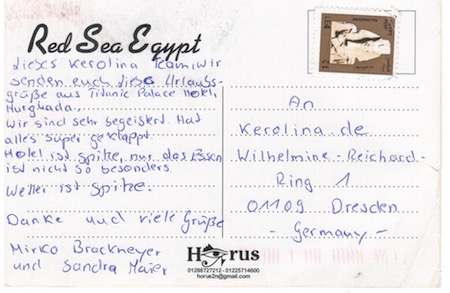 Red Sea Egypt
Liebes Kerolina Team, wir
senden euch diese Urlaubs-
grüße aus Titanic Palace Hotel,
Hurghada,
Wir sind sehr begeistert. Hat
alles super geklappt
Hotel ist spitze, nur das Essen
ist nicht so besonders.
Wetter ist spitze.
Danke und viele Grüße
Mirko Brackmeyer
und Sandra Maier
An
Kerolina.de
Wilhelmine-Reichard-
Ring 1
01109 Dresden
- Germany -
Horus
01288727212 - 01225714600
horus2n@gmail.com